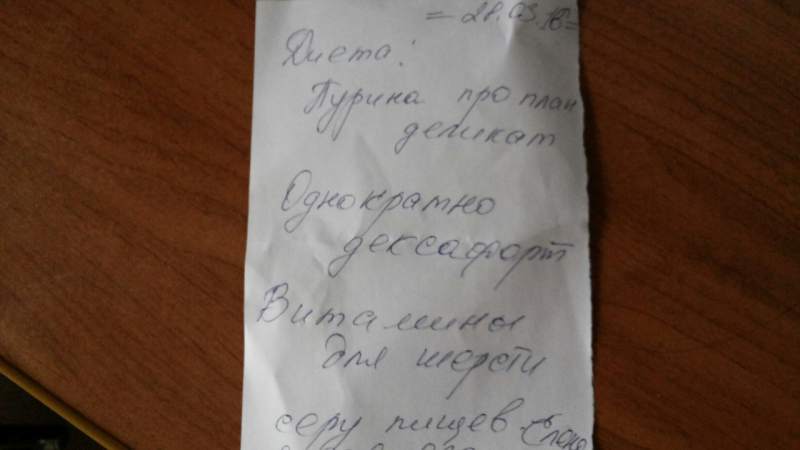 = 28.03.18=
Диета:
Пурина про план
деликат
Однократно
дексафорт
Витамины
для шерсти
серу пищев